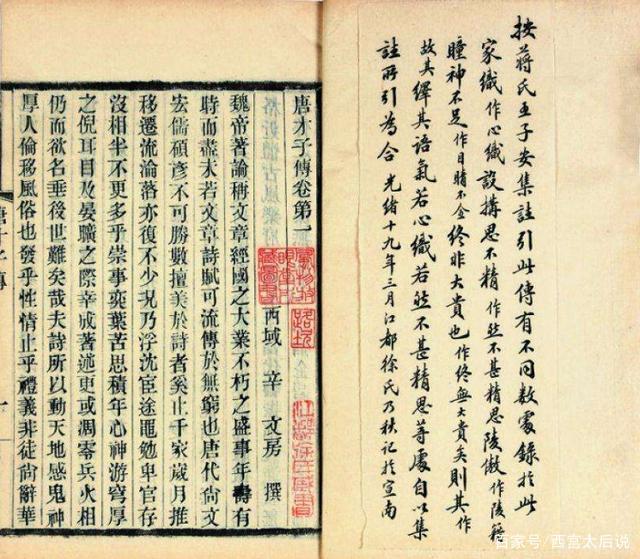 按蔣氏王子安集註引此傳有不同數處錄於此
家織作心織設搆思不精作然不甚精思陵傲作陵藉
瞳神不足作目睛不全終非大貴也作終無大貴矣則其作
故其繹其語氣若心織若然不甚精思等處自以集
註所引為合 光緒十九年三月江都徐氏乃秋記於宣南
唐才子傳卷第一
西域 辛 文房 撰
魏帝著論稱文章經國之大業不朽之盛事年壽有
時而盡未若文章詩賦可流傳於無窮也唐代尚詩
宏儒碩彥不可勝數擅美於詩者奚止千家歲月推
移遷流淪落亦復不少況乃浮沈宦途黽勉卑官存
沒相半不更多乎崇事奕葉苦思積年心神游穹厚
之倪耳目及晏曠之際幸成著述更或凋零兵火相
仍而欲名垂後世難矣哉夫詩所以動天地感鬼神
厚人倫移風俗也發乎性情止乎禮義非徒尚辭華
唐才子傳
一
百家号/西宫太后说